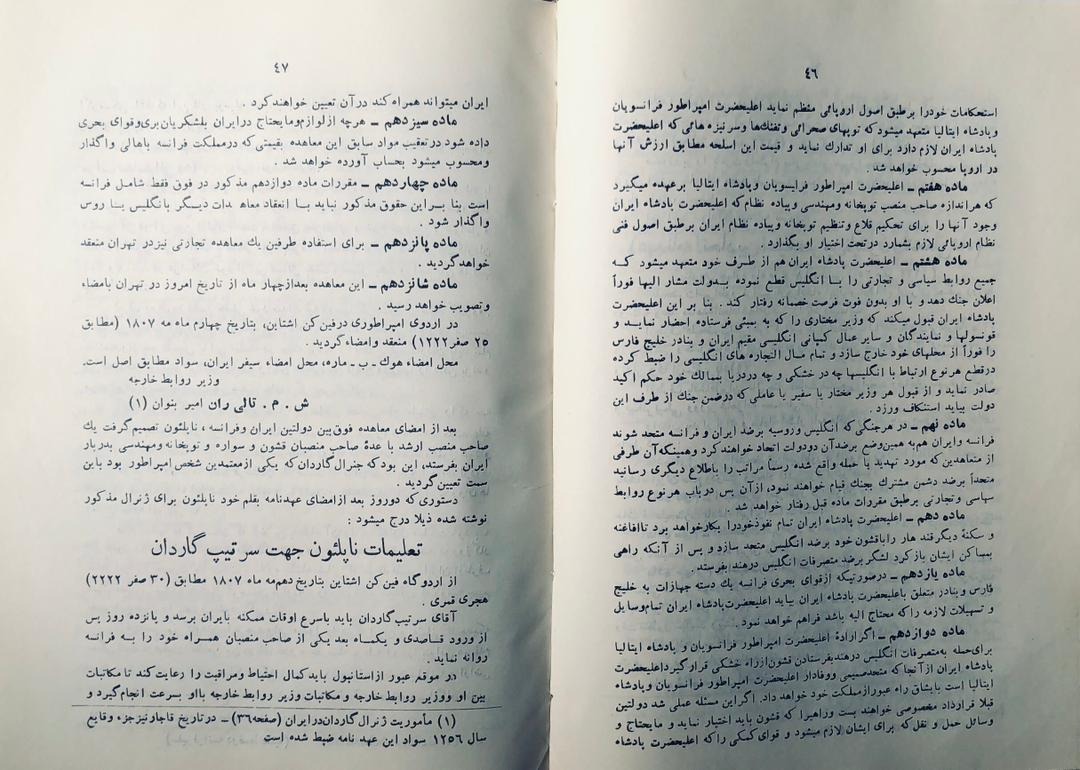 ٤٦
استحکامات خودرا برطبق اصول اروپائی منظم نماید اعلیحضرت امپراطور فرانسویان
وپادشاه ایتالیا متعهد میشود که توپهای صحرائی وتفنك‌ها وسر نیزه هائی که اعلیحضرت
پادشاه ایران لازم دارد برای او تدارك نماید و قیمت این اسلحه مطابق ارزش آنها
در اروپا محسوب خواهد شد .
ماده هفتم ــ اعلیحضرت امپراطور فرانسویان وپادشاه ایتالیا برعهده میگیرد
که هراندازه صاحب منصب توپخانه ومهندسی وپیاده نظام که اعلیحضرت پادشاه ایران
وجود آنها را برای تحکیم قلاع وتنظیم توپخانه وپیاده نظام ایران برطبق اصول فنی
نظام اروپائی لازم بشمارد درتحت اختیار او بگذارد .
ماده هشتم ــ اعلیحضرت پادشاه ایران هم از طرف خود متعهد میشود که
جمیع روابط سیاسی و تجارتی را با انگلیس قطع نموده بدولت مشار الیها فوراً
اعلان جنك دهد و با او بدون فوت فرصت خصمانه رفتار کند . بنا بر این اعلیحضرت
پادشاه ایران قبول میکند که وزیر مختاری را که به بمبئی فرستاده احضار نماید و
قونسولها و نمایندگان و سایر عمال کمپانی انگلیسی مقیم ایران و بنادر خلیج فارس
را فوراً از محلهای خود خارج سازد و تمام مال التجاره های انگلیسی را ضبط کرده
درقطع هرنوع ارتباط با انگلیسها چه در خشکی و چه دردریا بممالك خود حکم اکید
صادر نماید و از قبول هر وزیر مختار یا سفیر یا عاملی که درضمن جنك از طرف این
دولت بیاید استنکاف ورزد .
ماده نهم ــ در هرجنگی که انگلیس وروسیه برضد ایران و فرانسه متحد شوند
فرانسه وایران هم به همین وضع برضدآن دودولت اتحاد خواهند کرد وهمینکه آن طرفی
از متعاهدین که مورد تهدید یا حمله واقع شده رسماً مراتب را باطلاع دیگری رسانید
متحداً برضد دشمن مشترك بجنك قیام خواهند نمود، ازآن پس درباب هرنوع روابط
سیاسی وتجارتی برطبق مقررات ماده قبل رفتار خواهد شد .
ماده دهم ــ اعلیحضرت پادشاه ایران تمام نفوذخودرا بکارخواهد برد تاافاغنه
و سکنهٔ دیگرقند هار راباقشون خود برضد انگلیس متحد سازد و پس از آنکه راهی
بمساکن ایشان بازکرد لشگر برضد متصرفات انگلیس درهند بفرستد .
ماده یازدهم ــ درصورتیکه ازقوای بحری فرانسه یك دسته جهازات به خلیج
فارس وبنادر متعلق باعلیحضرت پادشاه ایران بیاید اعلیحضرت پادشاه ایران تمام وسایل
و تسهیلات لازمه را که محتاج الیه باشد فراهم خواهد نمود .
ماده دوازدهم ــ اگرارادهٔ اعلیحضرت امپراطور فرانسویان و پادشاه ایتالیا
برای حمله به متصرفات انگلیس درهند بفرستادن قشون ازراه خشکی قرار گیرد اعلیحضرت
پادشاه ایران ازآنجا که متحدصمیمی ووفادار اعلیحضرت امپراطور فرانسویان وپادشاه
ایتالیا است بایشاق راه عبورازمملکت خود خواهد داد. اگراین مسئله عملی شد دولتین
قبلا قرارداد مخصوصی خواهند بست وراهیرا که قشون باید اختیار نماید و مایحتاج و
وسائل حمل و نقل که برای ایشان لازم میشود و قوای کمکی را که اعلیحضرت پادشاه
٤٧
ایران میتواند همراه کند درآن تعیین خواهند کرد .
ماده سیزدهم ــ هرچه ازلوازم ومایحتاج درایران بلشگریان بری وقوای بحری
داده شود درتعقیب مواد سابق این معاهده بقیمتی که درمملکت فرانسه باهالی واگذار
ومحسوب میشود بحساب آورده خواهد شد .
ماده چهاردهم ــ مقررات ماده دوازدهم مذکور در فوق فقط شامل فرانسه
است بنا براین حقوق مذکور نباید با انعقاد معاهدات دیگر بانگلیس یا روس
واگذار شود .
ماده پانزدهم ــ برای استفاده طرفین یك معاهده تجارتی نیزدر تهران منعقد
خواهدگردید .
ماده شانزدهم ــ این معاهده بعدازچهار ماه از تاریخ امروز در تهران بامضاء
وتصویب خواهد رسید .
در اردوی امپراطوری درفین کن اشتاین، بتاریخ چهارم ماه مه ۱۸۰۷ (مطابق
۲۵ صفر۱۲۲۲) منعقد وامضاء گردید .
محل امضاء هوك ــ ب ــ ماره، محل امضاء سفیر ایران، سواد مطابق اصل است.
وزیر روابط خارجه
ش . م . تالی ران امیر بنوان (۱)
بعد از امضای معاهده فوق بین دولتین ایران وفرانسه ، ناپلئون تصمیم گرفت یك
صاحب منصب ارشد با عدهٔ صاحب منصبان قشون و سواره و توپخانه ومهندسی بدربار
ایران بفرستد، این بود که جنرال گاردان که یکی ازمعتمدین شخص امپراطور بود باین
سمت تعیین گردید .
دستوری که دوروز بعد ازامضای عهدنامه بقلم خود ناپلئون برای ژنرال مذکور
نوشته شده ذیلا درج میشود :
تعلیمات ناپلئون جهت سرتیپ گاردان
از اردوگاه فین کن اشتاین بتاریخ دهم مه ماه ۱۸۰۷ مطابق (۳۰ صفر ۲۲۲۲)
هجری قمری .
آقای سرتیپ گاردان باید باسرع اوقات ممکنه بایران برسد و پانزده روز پس
از ورود قاصدی و یکماه بعد یکی از صاحب منصبان همراه خود را به فرانسه
روانه نماید .
در موقع عبور ازاستانبول باید کمال احتیاط ومراقبت را رعایت کند تا مکاتبات
بین او ووزیر روابط خارجه و مکاتبات وزیر روابط خارجه بااو بسرعت انجام گیرد و
(۱) مأموریت ژنرال گاردان درایران (صفحه ۳۶) ــ در تاریخ قاجار نیز جزء وقایع
سال ۱۲۵۶ سواد این عهد نامه ضبط شده است